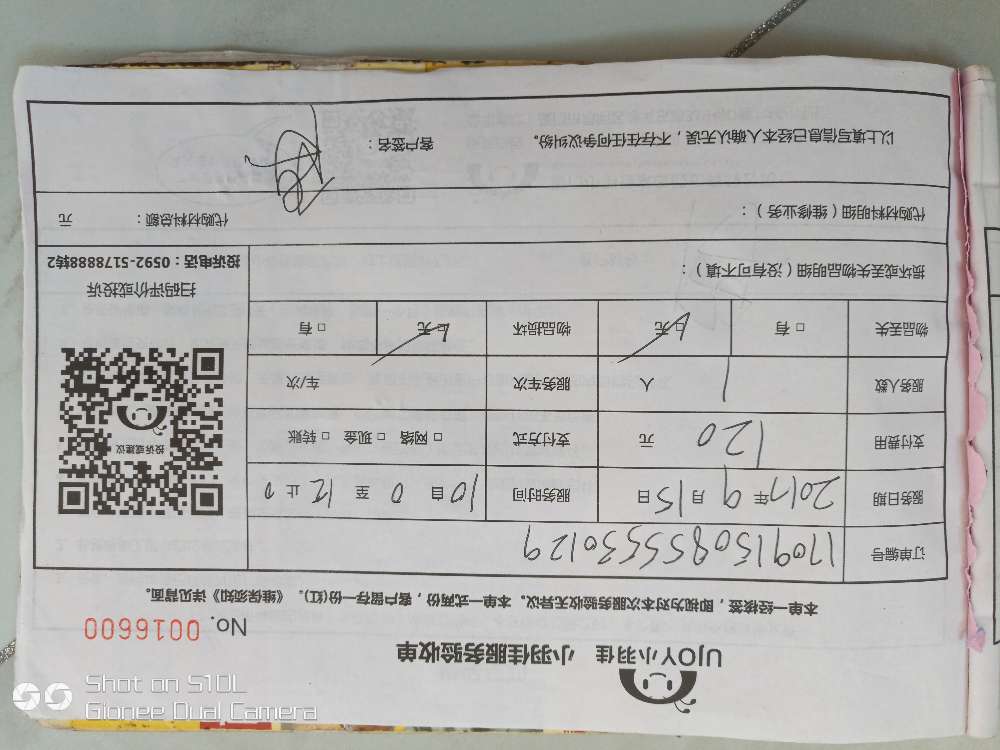 UJOY小羽佳 小羽佳服务验收单
No. 0016600
本单一经核签，即视为对本次服务验收无异议。本单一式两份，客户留存一份(红)。《维保须知》详见背面。
订单编号 17091508555530129
服务日期 2017年9月15日 服务时间 10自0至12止0
支付费用 120 元 支付方式 □ 网络 □ 现金 □ 转账
服务人数 1 人 服务车次 车/次
物品丢失 □ 有 □ 无 物品损坏 □ 无 □ 有
投诉或建议
扫码评价或投诉
投诉电话：0592-5178888转2
损坏或丢失物品明细（没有可不填）：
代购材料明细（维修业务）： 代购材料总额： 元
以上填写信息已经本人确认无误，不存在任何争议纠纷。 客户签名：
Shot on S10L
Gionee Dual Camera